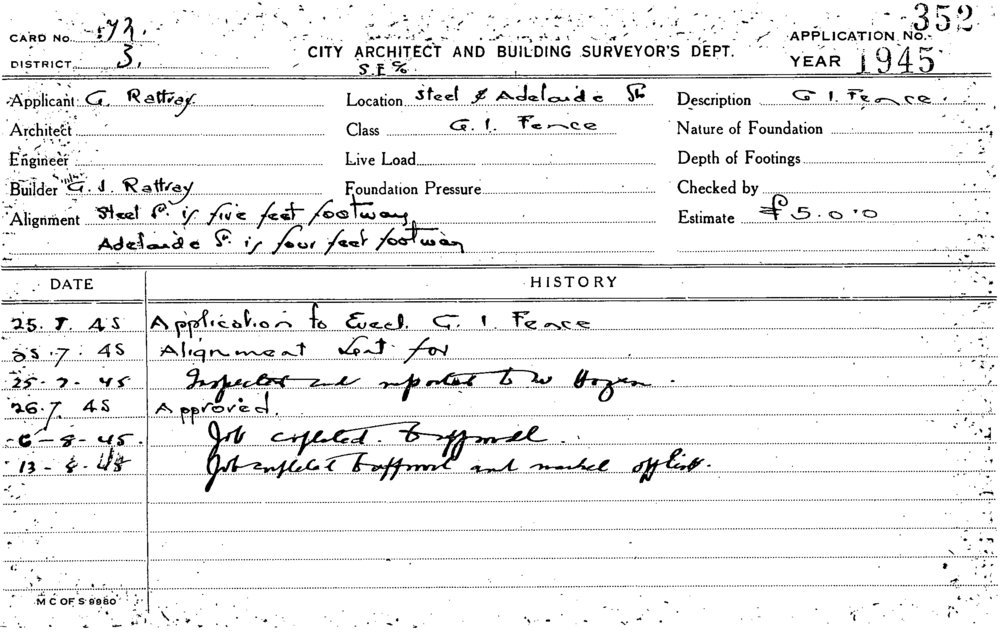 CARD No. 173.
APPLICATION No. 352
DISTRICT 3.
CITY ARCHITECT AND BUILDING SURVEYOR'S DEPT.
YEAR 1945
S.E. %
Applicant G. Rattray
Location Steel & Adelaide Sts
Description G. I. Fence.
Architect
Class G. I. Fence
Nature of Foundation
Engineer
Live Load
Depth of Footings
Builder G. J. Rattray
Foundation Pressure
Checked by
Alignment Steel St. is five feet footway
Estimate £5.0.0
Adelaide St. is four feet footway
DATE
HISTORY
25. 7. 45 Application to Erect G. I. Fence
25. 7. 45 Alignment sent for
25-7-45 Inspected and reported to
26.7.45 Approved.
6-8-45. Job completed to approval.
13-8-45 Job completed to approval and marked off
M C OF S 9980